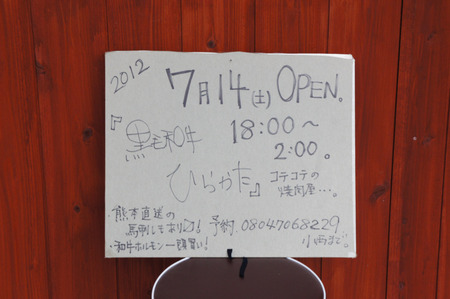 2012
7月14(土) OPEN。
『黒毛和牛 18:00～
2:00。
ひらかた』 コテコテの
焼肉屋…。
・熊本直送の
馬刺しもあり〼! 予約 08047068229
・和牛ホルモン一頭買い! 小西まで。